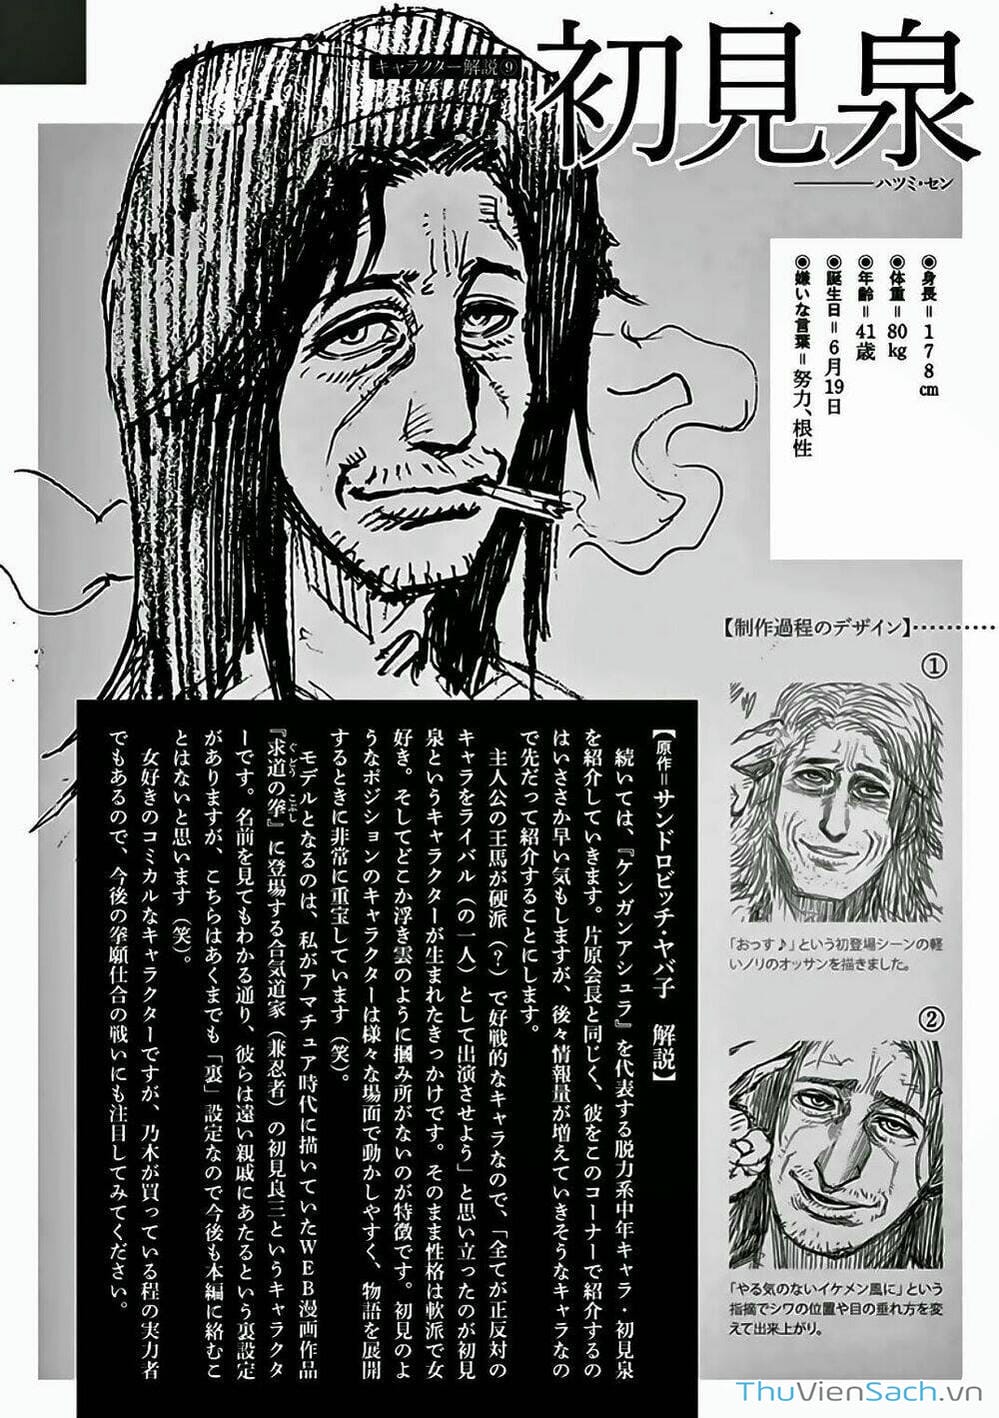 キャラクター解説⑨
初見泉
ハツミ・セン
◉身長＝178㎝
◉体重＝80㎏
◉年齢＝41歳
◉誕生日＝6月19日
◉嫌いな言葉＝努力、根性
【制作過程のデザイン】…………
①
「おっす♪」という初登場シーンの軽
いノリのオッサンを描きました。
②
「やる気のないイケメン風に」という
指摘でシワの位置や目の垂れ方を変
えて出来上がり。
【原作＝サンドロビッチ・ヤバ子　解説】
続いては、『ケンガンアシュラ』を代表する脱力系中年キャラ・初見泉
を紹介していきます。片原会長と同じく、彼をこのコーナーで紹介するの
はいささか早い気もしますが、後々情報量が増えていきそうなキャラなの
で先だって紹介することにします。
主人公の王馬が硬派（？）で好戦的なキャラなので、「全てが正反対の
キャラをライバル（の一人）として出演させよう」と思い立ったのが初見
泉というキャラクターが生まれたきっかけです。そのまま性格は軟派で女
好き。そしてどこか浮き雲のように摑み所がないのが特徴です。初見のよ
うなポジションのキャラクターは様々な場面で動かしやすく、物語を展開
するときに非常に重宝しています（笑）。
モデルとなるのは、私がアマチュア時代に描いていたWEB漫画作品
『求道の拳』に登場する合気道家（兼忍者）の初見良三というキャラクタ
ぐどう　こぶし
ーです。名前を見てもわかる通り、彼らは遠い親戚にあたるという裏設定
がありますが、こちらはあくまでも「裏」設定なので今後も本編に絡むこ
とはないと思います（笑）。
女好きのコミカルなキャラクターですが、乃木が買っている程の実力者
でもあるので、今後の拳願仕合の戦いにも注目してみてください。
ThuVienSach.vn